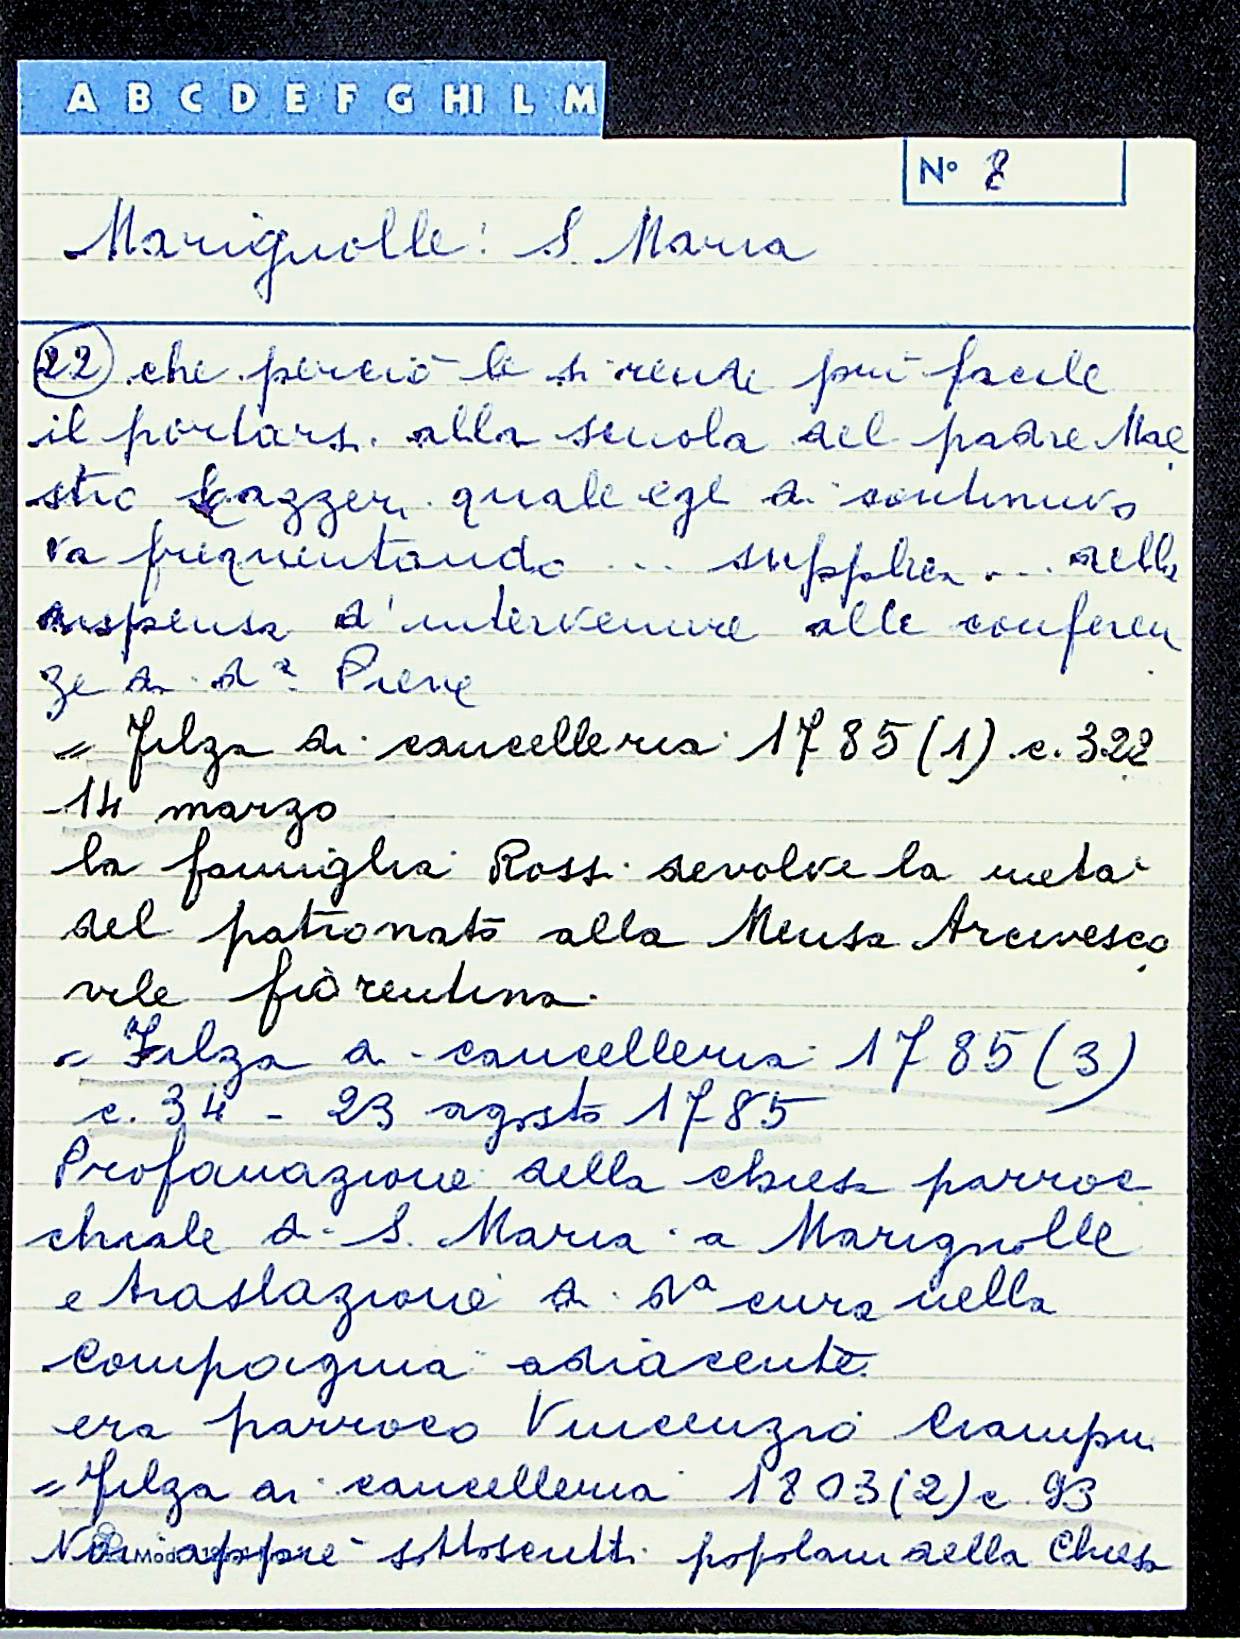 A B C D E F G HI L M
Nº 8
Marignolle: S. Maria
22 che perciò le si rende più facile
il portarsi alla scuola del padre Mae
stro quale egli di continuo
va frequentando ... supplica ... della
dispensa d'intervenire alle conferen
ze di da Pieve
= Filza di cancelleria 1785 (1) c. 322
14 marzo
la famiglia Rossi devolve la metà
del patronato alla Mensa Arcivesco
vile fiorentina.
= Filza di cancelleria 1785 (3)
c. 34 - 23 agosto 1785
Profanazione della chiesa parroc
chiale di S. Maria a Marignolle
e traslazione di da cura nella
Compagnia adiacente.
era parroco Vincenzio Ciampi
= Filza di cancelleria 1803 (2) c 93
Noi appiè sottoscritti popolani della Chiesa